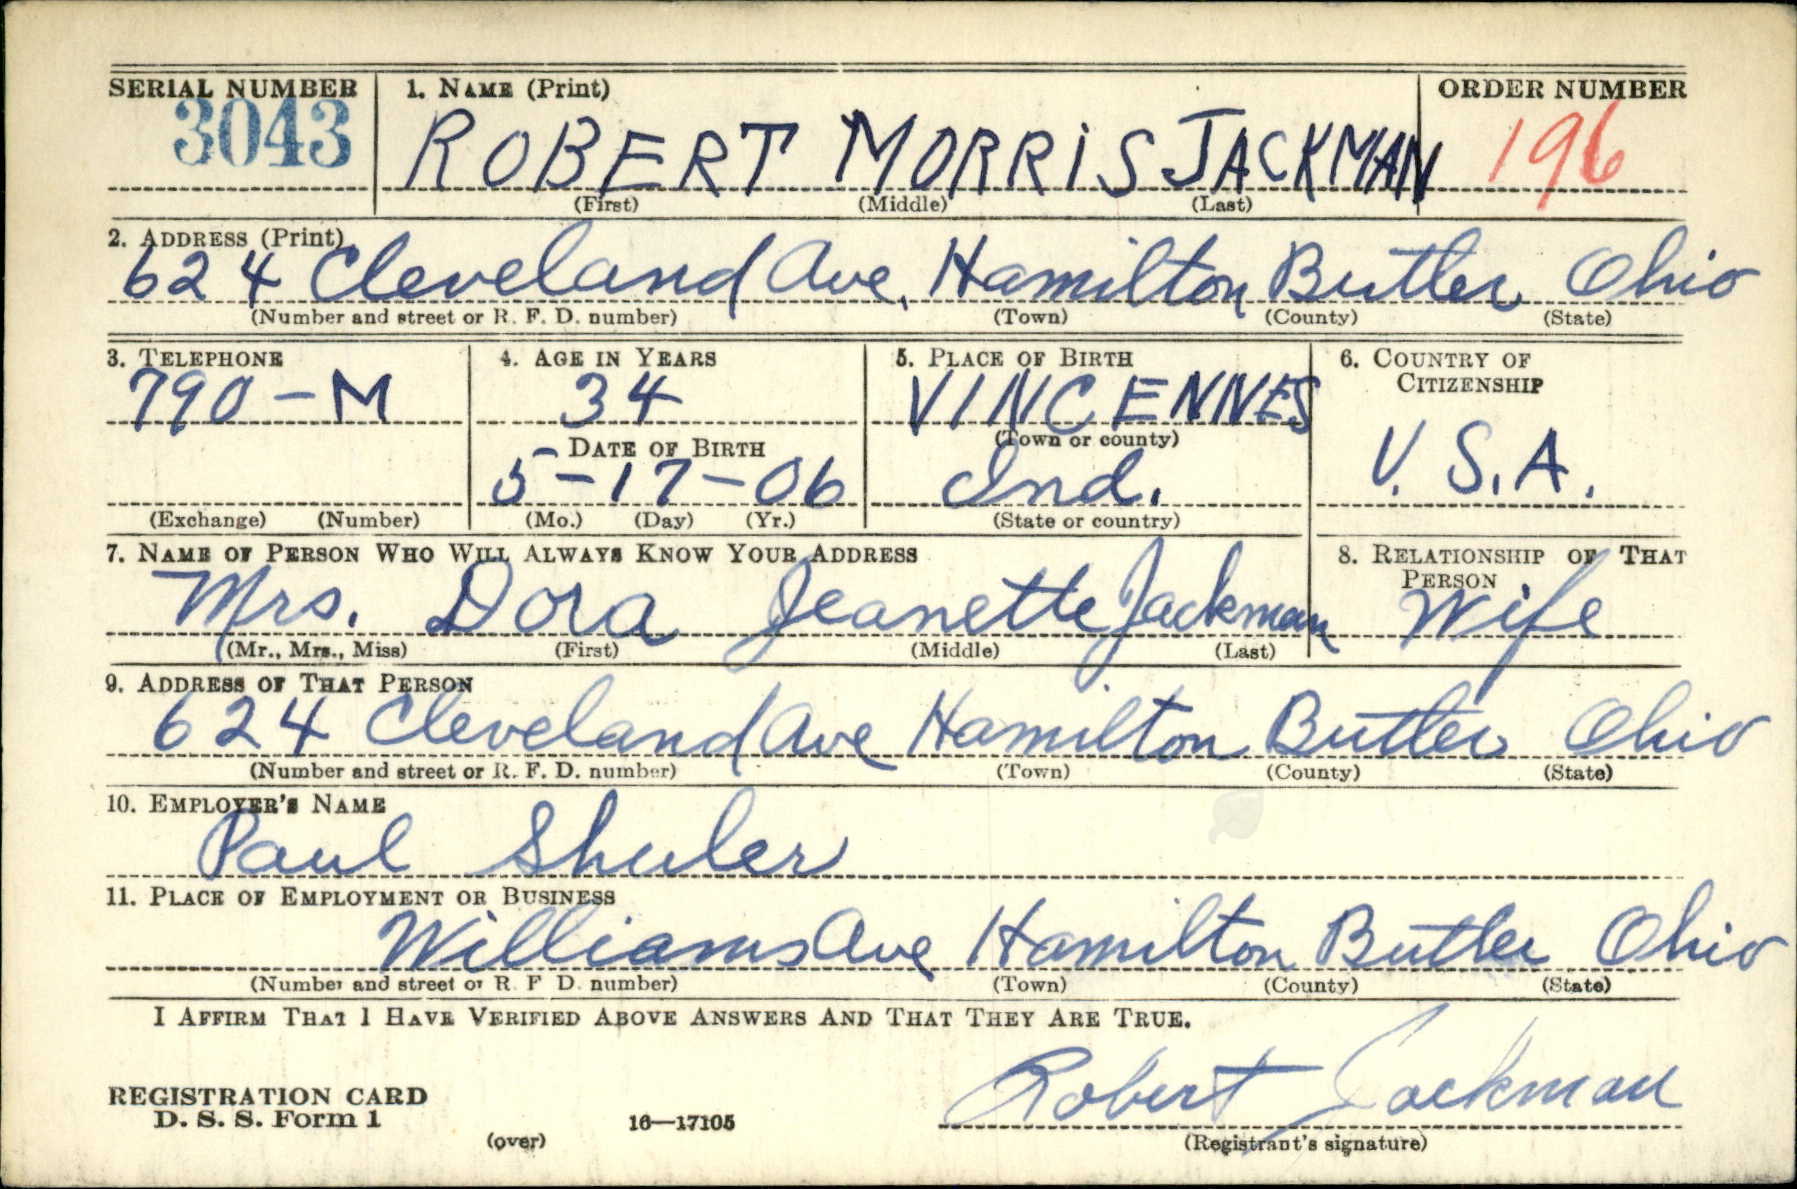 SERIAL NUMBER 1. NAME (Print) ORDER NUMBER
3043 ROBERT MORRIS JACKMAN 196
(First) (Middle) (Last)
2. ADDRESS (Print)
624 Cleveland Ave. Hamilton Butler Ohio
(Number and street or R. F. D. number) (Town) (County) (State)
3. TELEPHONE 4. AGE IN YEARS 5. PLACE OF BIRTH 6. COUNTRY OF
CITIZENSHIP
790-M 34 VINCENNES
DATE OF BIRTH (Town or county)
5-17-06 Ind. U.S.A.
(Exchange) (Number) (Mo.) (Day) (Yr.) (State or country)
7. NAME OF PERSON WHO WILL ALWAYS KNOW YOUR ADDRESS 8. RELATIONSHIP OF THAT
PERSON
Mrs. Dora Jeanette Jackman Wife
(Mr., Mrs., Miss) (First) (Middle) (Last)
9. ADDRESS OF THAT PERSON
624 Cleveland Ave Hamilton Butler Ohio
(Number and street or R. F. D. number) (Town) (County) (State)
10. EMPLOYER'S NAME
Paul Shuler
11. PLACE OF EMPLOYMENT OR BUSINESS
Williams Ave Hamilton Butler Ohio
(Number and street or R F D. number) (Town) (County) (State)
I AFFIRM THAT I HAVE VERIFIED ABOVE ANSWERS AND THAT THEY ARE TRUE.
Robert Jackman
REGISTRATION CARD
D. S. S. Form 1 16—17105
(over) (Registrant's signature)